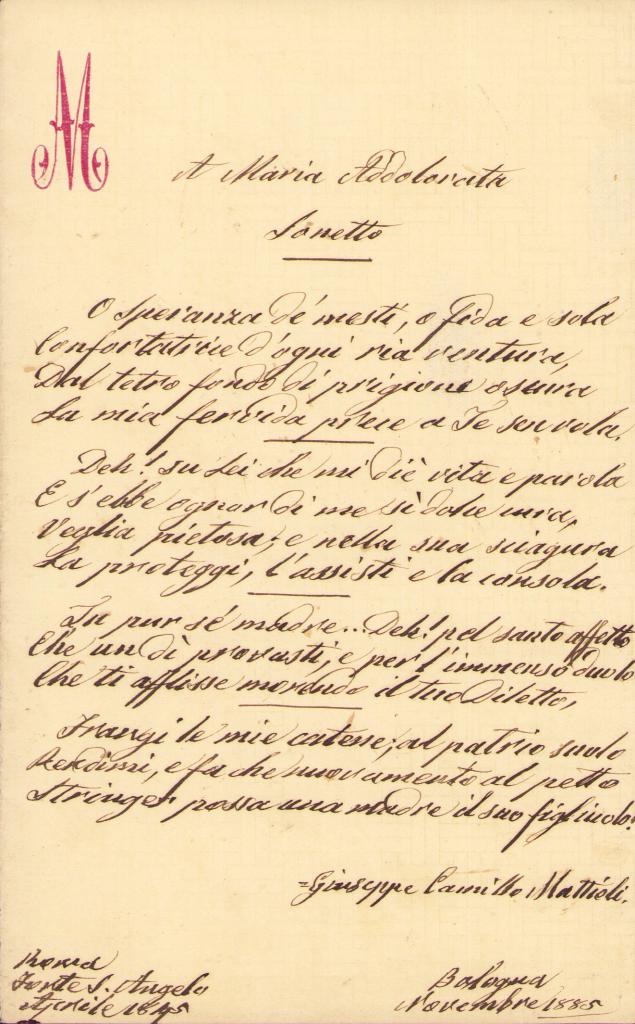 M
A Maria Addolorata
Sonetto
O Speranza de' mesti, o fida e sola
Confortatrice d'ogni ria ventura,
Dal tetro fondo di prigione oscura
La mia fervida prece a Te sen vola.
Deh! su Lei che mi diè vita e parola
E s'ebbe ognor di me sì dolce cura,
Veglia pietosa; e nella sua sciagura
La proteggi, l'assisti e la consola.
Tu pur sé madre... Deh! pel santo affetto
Che un dì provasti, e per l'immenso duolo
Che ti afflisse morendo il tuo Diletto,
Frangi le mie catene; al patrio suolo
Rendimi, e fa che nuovamente al petto
Stringer possa una madre il suo figliuolo!
=Giuseppe Camillo Mattioli.
Roma
Forte S. Angelo
Aprile 1845
Bologna
Novembre 1885